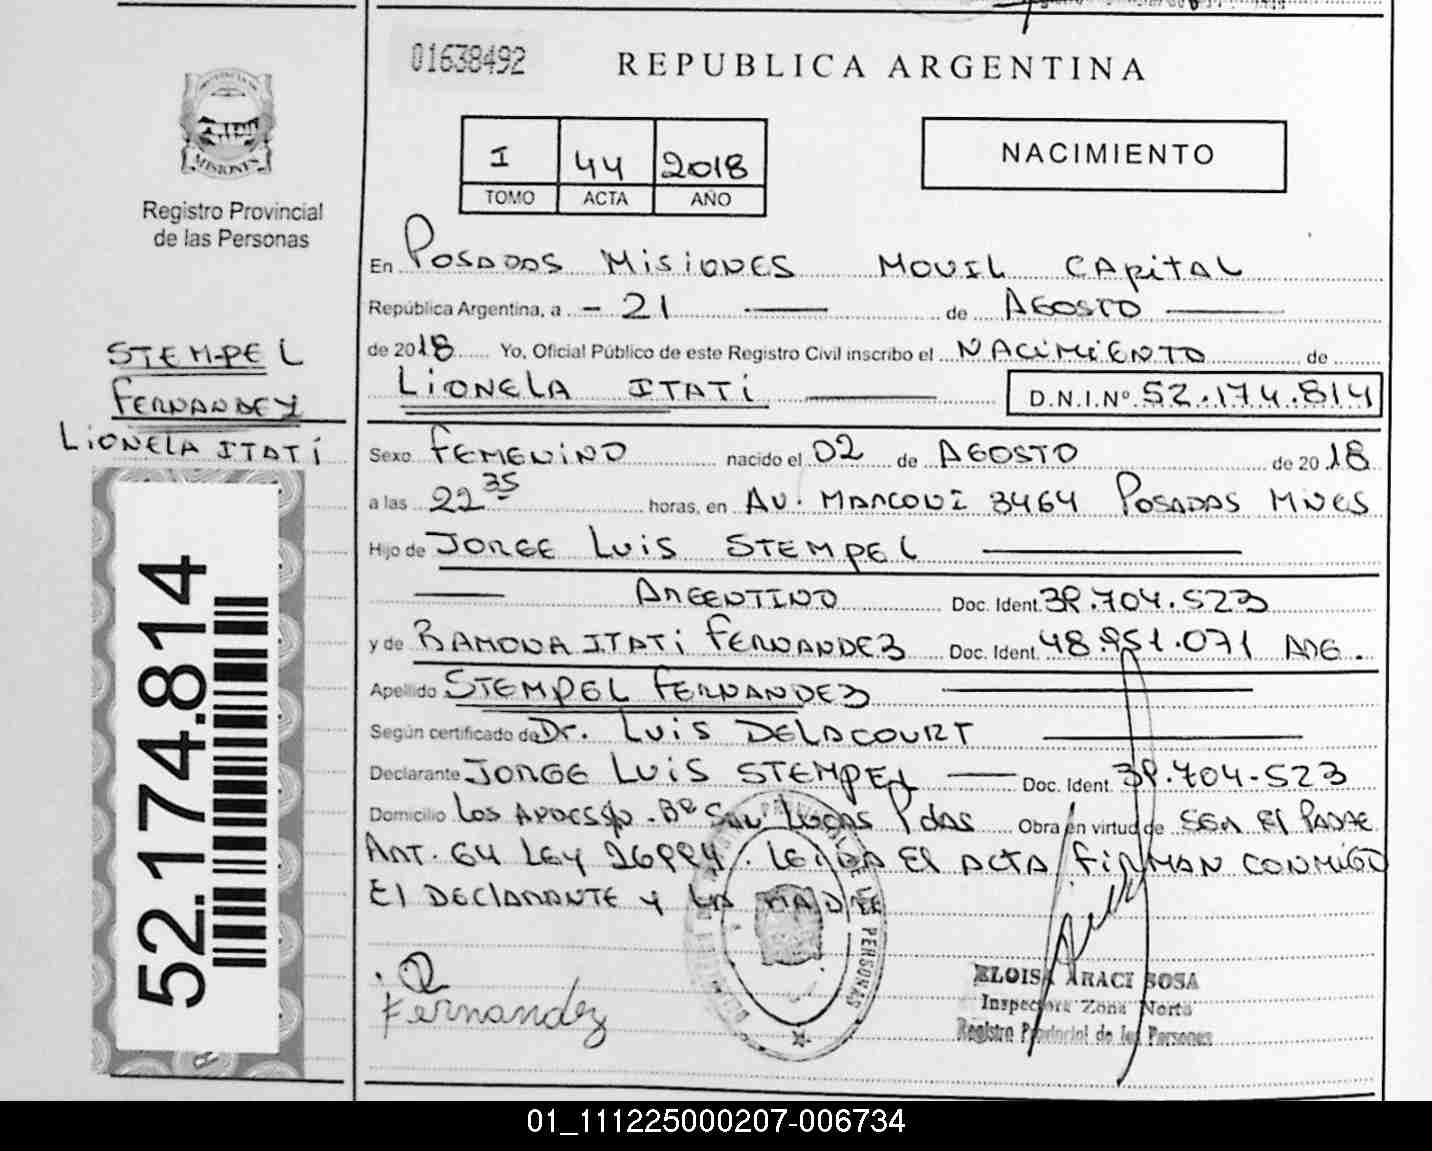 01638492
REPUBLICA ARGENTINA
I 44 2018
TOMO ACTA AÑO
NACIMIENTO
MISIONES
Registro Provincial
de las Personas
En POSADAS MISIONES MOVIL CAPITAL
República Argentina, a - 21 de AGOSTO
de 2018 Yo, Oficial Público de este Registro Civil inscribo el NACIMIENTO de
LIONELA ITATI D.N.I.Nº 52.174.814
STEMPEL
FERNANDEZ
LIONELA ITATI
Sexo FEMENINO nacido el 02 de AGOSTO de 2018
a las 22 35 horas, en AV. MARCONI 3464 POSADAS MNES
Hijo de JORGE LUIS STEMPEL
ARGENTINO Doc. Ident. 704.523
y de RAMONA ITATI FERNANDEZ Doc. Ident. 48.951.071 ARG.
Apellido STEMPEL FERNANDEZ
Según certificado de Dr. LUIS DELACOURT
Declarante JORGE LUIS STEMPEL Doc. Ident. 704-523
Domicilio LOS Bº SAN LUCAS Pdas Obra en virtud de SER El PADRE
ART. 64 LEY 26994. LEIDA El ACTA FIRMAN CONMIGO
El DECLARANTE Y LA MADRE
Fernandez
DE LAS PERSONAS
ELOISA ARACI SOSA
Inspectora Zona Norte
Registro Provincial de las Personas
52.174.814
01_111225000207-006734